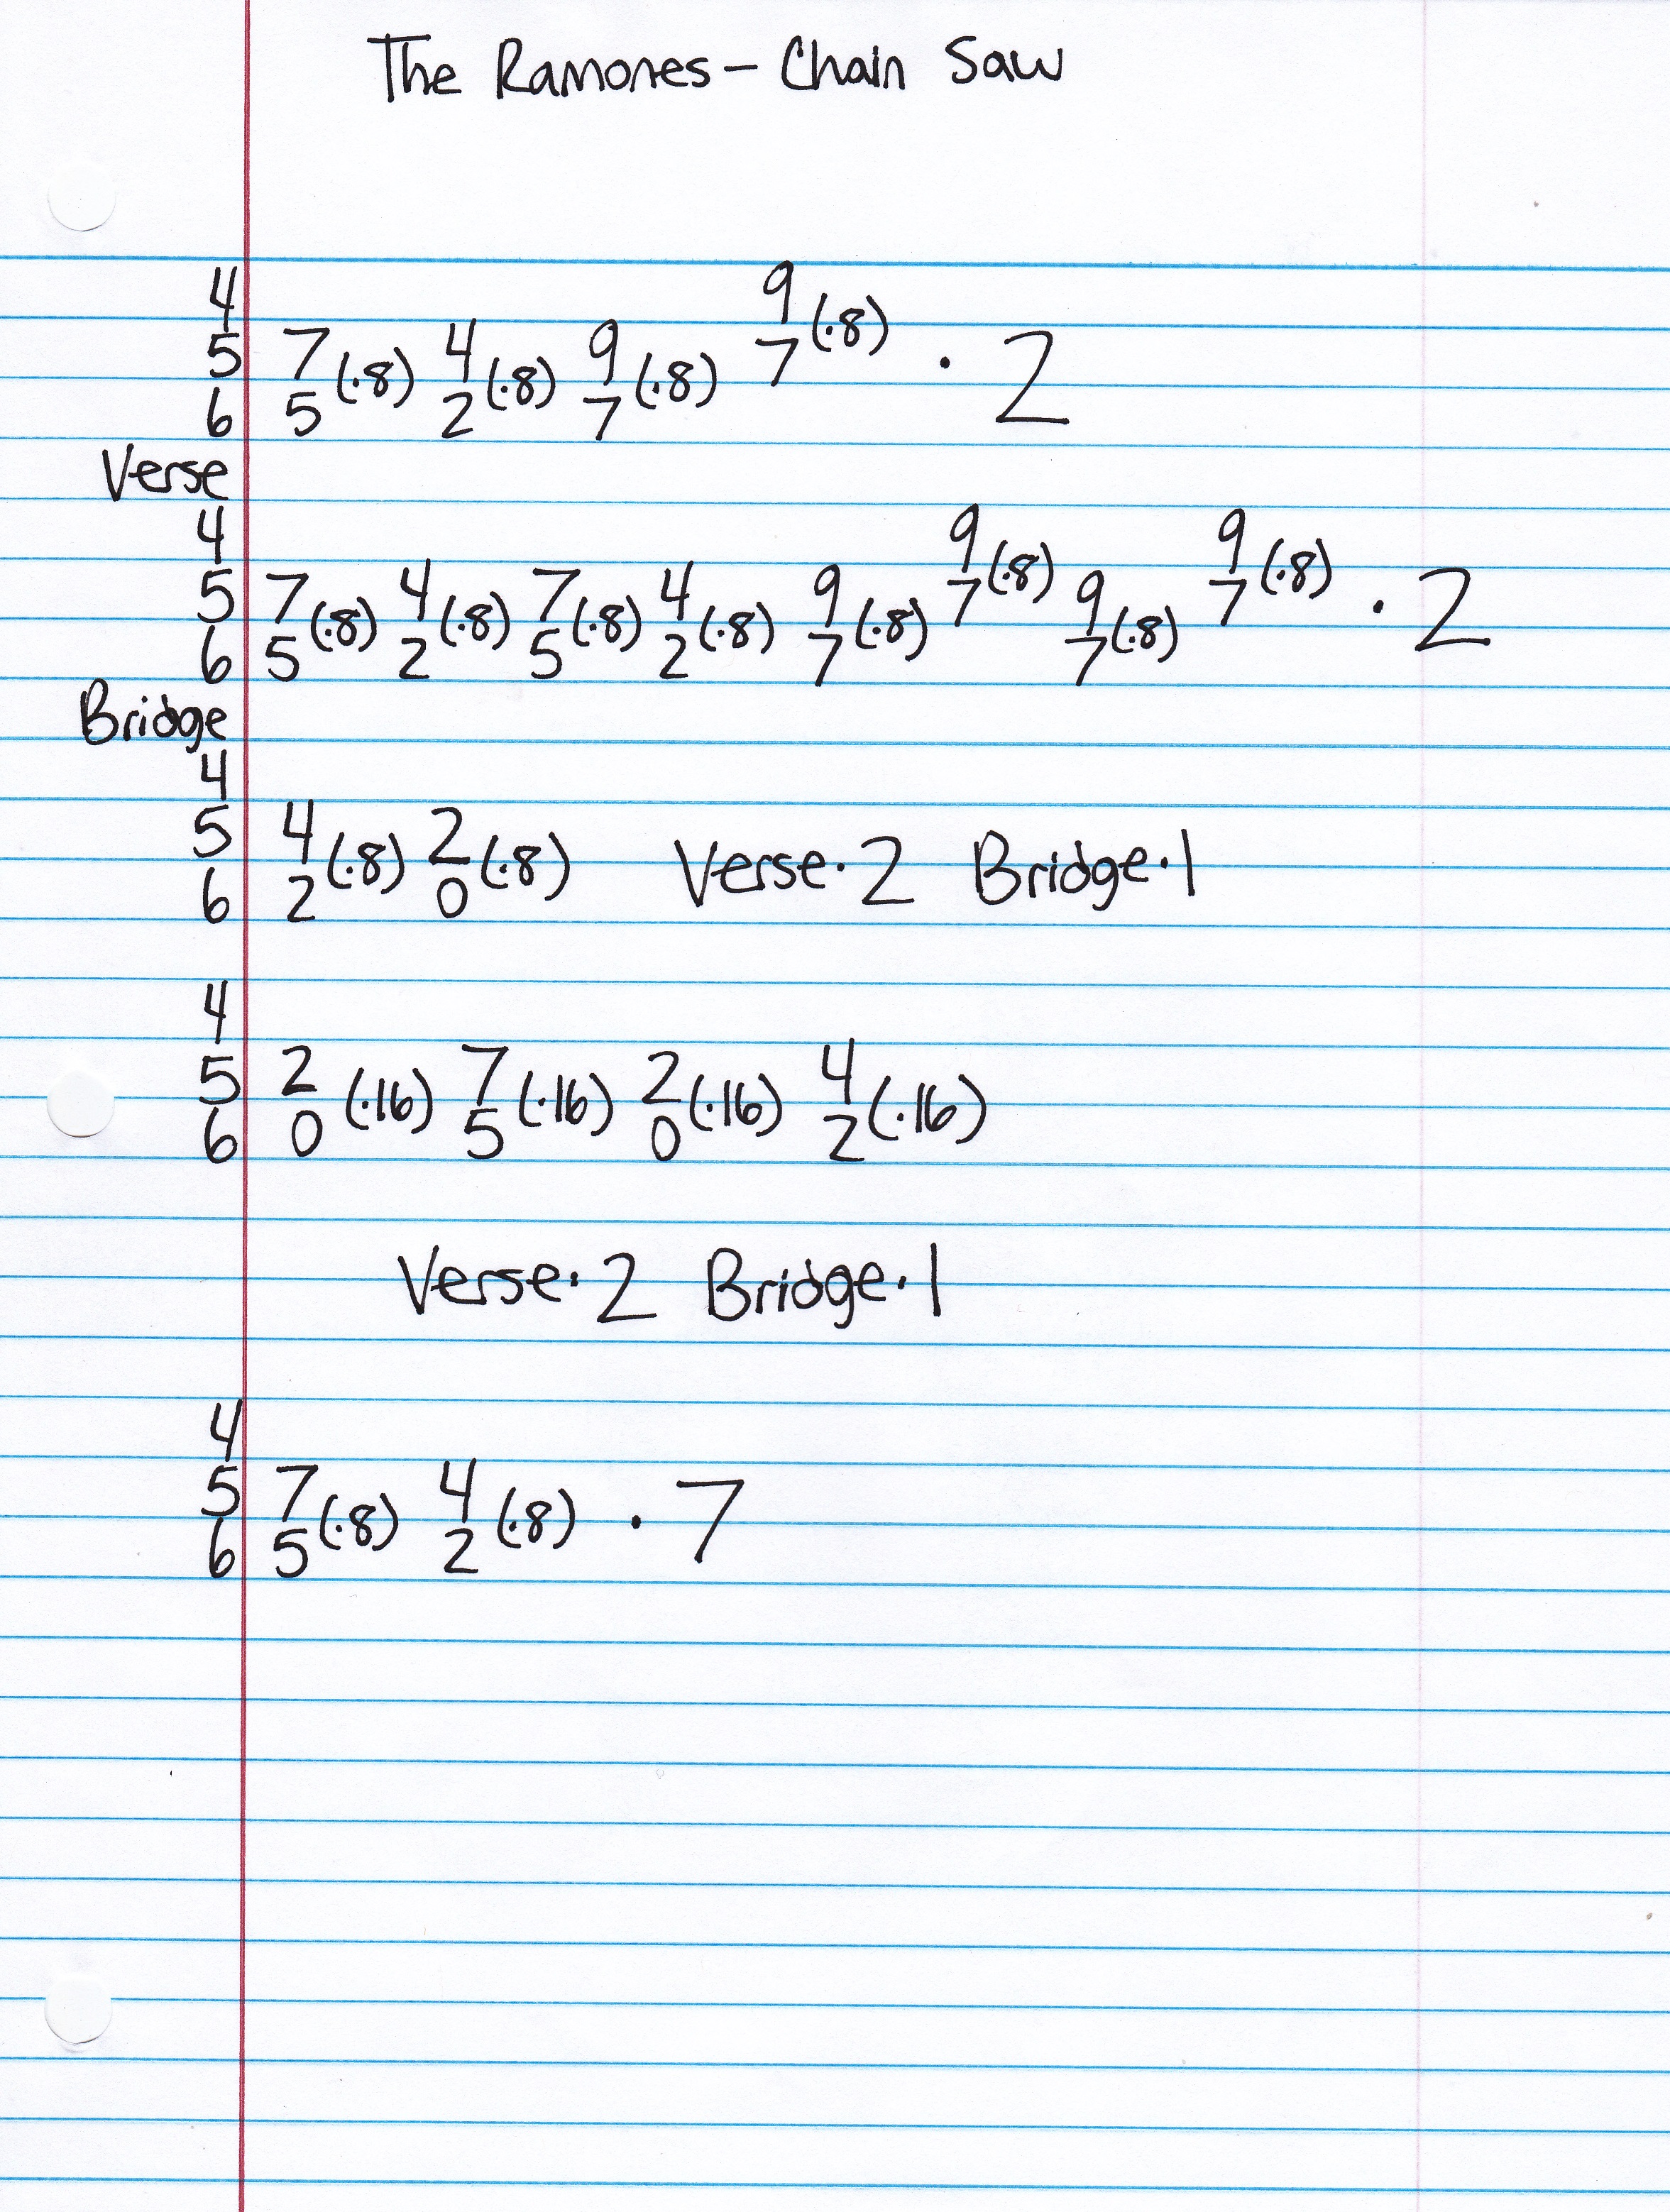 The Ramones - Chain Saw
4 9
5 7 (·8) 4 (·8) 9 (·8) 7 (·8) · 2
6 5 2 7
Verse
4 9 9
5 7 (·8) 4 (·8) 7 (·8) 4 (·8) 9 (·8) 7 (·8) 9 (·8) 7 (·8) · 2
6 5 2 5 2 7 7
Bridge
4
5 4 (·8) 2 (·8) Verse · 2 Bridge · 1
6 2 0
4
5 2 (·16) 7 (·16) 2 (·16) 4 (·16)
6 0 5 0 2
Verse · 2 Bridge · 1
4
5 7 (·8) 4 (·8) · 7
6 5 2